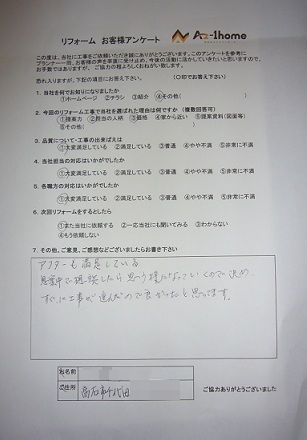 リフォーム お客様アンケート
Az-1home
この度は、当社に工事をご依頼いただき誠にありがとうございます。このアンケートを参考に
プランナー一同、お客様の声を真摯に受け止め、今後の活動に活かしていきたいと思いますので、
お手数ではありますが、ご協力の程よろしくおねがい致します。
恐れ入りますが、下記の項目にお答え下さい。 (○印でお答え下さい)
1. 当社を何でお知りになりましたか
①ホームページ ②チラシ ③紹介 ④その他( )
2. 今回のリフォーム工事で当社を選ばれた理由は何ですか (複数回答可)
①提案力 ②担当の人柄 ③価格 ④家から近い ⑤提案資料(図面等)
⑥その他( )
3. 品質について・工事の出来ばえは
①大変満足している ②満足している ③普通 ④やや不満 ⑤非常に不満
4. 当社担当の対応はいかがでしたか
①大変満足している ②満足している ③普通 ④やや不満 ⑤非常に不満
5. 各職方の対応はいかがでしたか
①大変満足している ②満足している ③普通 ④やや不満 ⑤非常に不満
6. 次回リフォームをするとしたら
①また当社に依頼する ②一応当社にも聞いてみる ③わからない
④もう依頼しない
7. その他、ご意見、ご感想などございましたらお書き下さい
アフターも満足している
相談したら思う様になっていくので決め、
すぐに工事が進んだので良かったと思ってます。
お名前
ご住所 高石市千代田
ご協力ありがとうございました